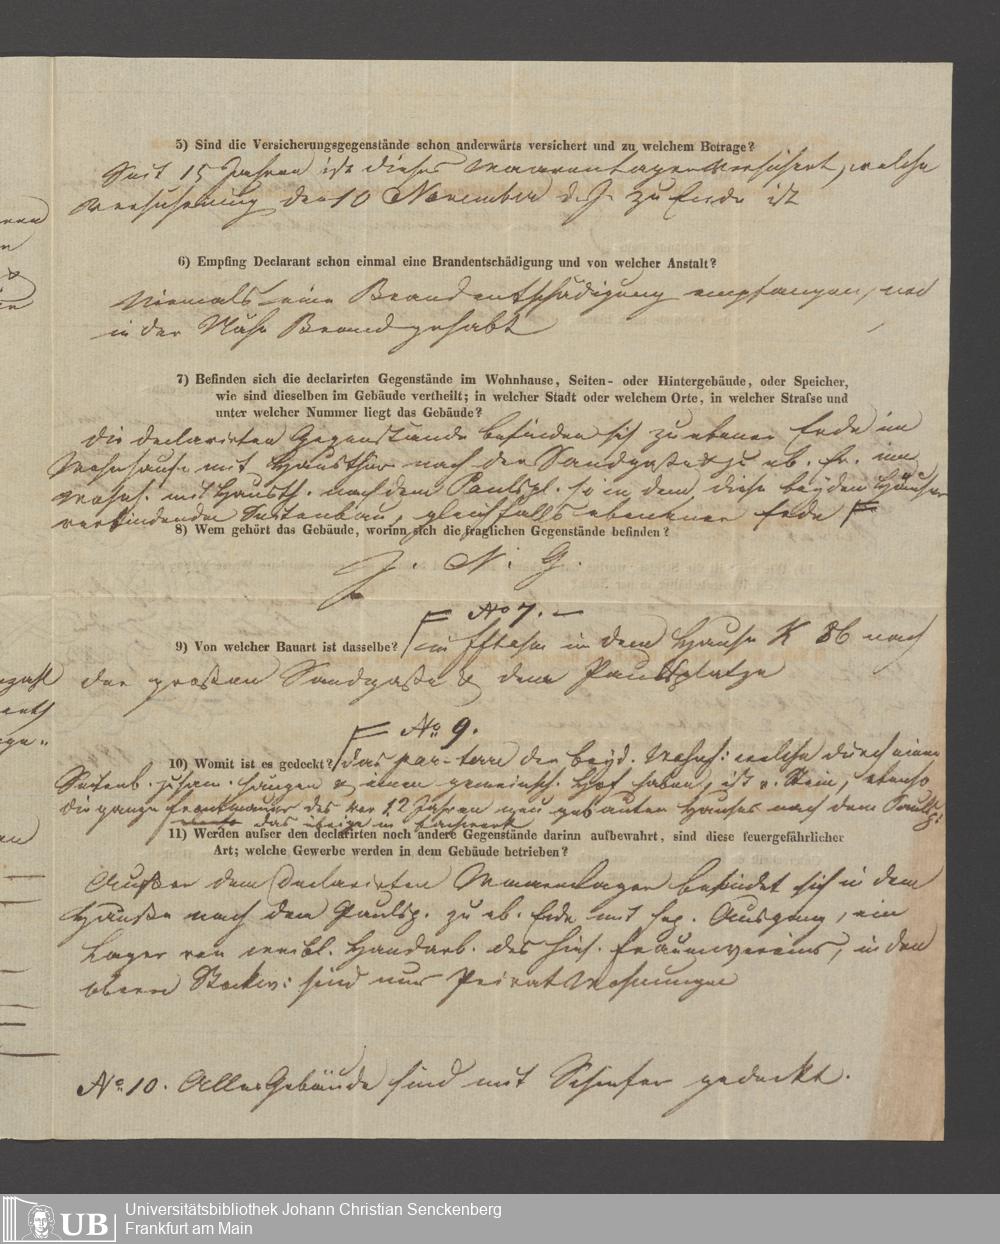 5) Sind die Versicherungsgegenstände schon anderwärts versichert und zu welchem Betrage?
Seit 15 Jahren ist dieses Waarenlager versichert, welche
Versicherung den 10 November d. J. zu Ende ist
6) Empfing Declarant schon einmal eine Brandentschädigung und von welcher Anstalt?
Niemals eine Brandentschädigung empfangen, noch
in der Nähe Brand gehabt
7) Befinden sich die declarirten Gegenstände im Wohnhause, Seiten- oder Hintergebäude, oder Speicher,
wie sind dieselben im Gebäude vertheilt; in welcher Stadt oder welchem Orte, in welcher Strafse und
unter welcher Nummer liegt das Gebäude?
Die declarirten Gegenstände befinden sich zu ebener Erde im
Wohnhause mit Hausthür nach der Sandgasse & zu eb. Er. im
Wohnh. mit Hausth. nach dem Paulspl. so in dem, diese beyden Häuser
verbindenden Seitenbau, gleichfalls ebener Erde
8) Wem gehört das Gebäude, worinn sich die fraglichen Gegenstände befinden?
J. N. G.
No 7. —
9) Von welcher Bauart ist dasselbe?
in dem Hause K 86 nach
der grossen Sandgasse & dem Paulsplatze
No 9.
10) Womit ist es gedeckt?
das par-terre der beyd. Wohnh: welche durch einen
Seitenb. zusam. hängen & einen gemeinsch. Hof haben, ist v. Stein, ebenso
die ganze Frontmauer des vor 12 Jahren neu gebauten Hauses nach dem Paulsp:
das übrige in Fachwerk
11) Werden aufser den declarirten noch andere Gegenstände darinn aufbewahrt, sind diese feuergefährlicher
Art; welche Gewerbe werden in dem Gebäude betrieben?
Ausser dem declarirten Waarenlager befindet sich in dem
Hause nach dem Paulsp. zu eb. Erde mit sep. Ausgang, ein
Lager von weibl. Handarb. des hies. Frauenvereins, in den
obern Stockw: sind nur Privat Wohnungen
No 10. Alle Gebäude sind mit Schiefer gedeckt.
UB
Universitätsbibliothek Johann Christian Senckenberg
Frankfurt am Main